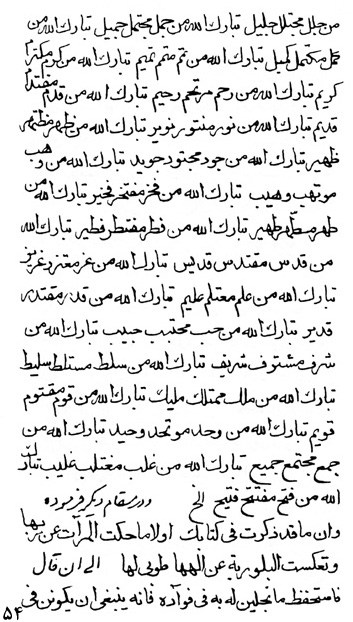 من جلل مجتلل جلیل تبارک الله من جمل مجتمل جمیل تبارک الله من
کمل مکتمل کمیل تبارک الله من تمم متمم تمیم تبارک الله من کرم مکترم
کریم تبارک الله من رحم مرتحم رحیم تبارک الله من قدم مقتدم
قدیم تبارک الله من نور منتور نویر تبارک الله من ظهر مظتهر
ظهیر تبارک الله من جود مجتود جوید تبارک الله من وهب
موتهب وهیب تبارک الله من فخر مفتخر فخیر تبارک الله من
طهر مطهر طهیر تبارک الله من فطر مفتطر فطیر تبارک الله
من قدس مقتدس قدیس تبارک الله من عزز معتزز عزیز
تبارک الله من علم معتلم علیم تبارک الله من قدر مقتدر
قدیر تبارک الله من حبب محتبب حبیب تبارک الله من
شرف مشترف شریف تبارک الله من سلط مستلط سلیط
تبارک الله من ملک ممتلک ملیک تبارک الله من قوم مقتوم
قویم تبارک الله من وحد موتحد وحید تبارک الله من
جمع مجتمع جمیع تبارک الله من غلب مغتلب غلیب تبارک
الله من فتح مفتتح فتیح الخ و در مقام دیگر فرموده
وان ما قد ذکرت فی کتابک اولا ما حکت المرآت عن ربها
وتعکست البلوریة عن الهها طوبی لها الی ان قال
فاستحفظ ما تجلین له به فی فوآده فانه ینبغی ان یکونن فی
۵۴